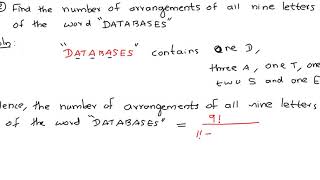 Find the number of arrangements of all nine letters
of the word "DATABASES"
"DATABASES" contains one D,
three A, one T, one
two S and one E
the number of arrangements of all nine letters
of the word "DATABASES" = 9!